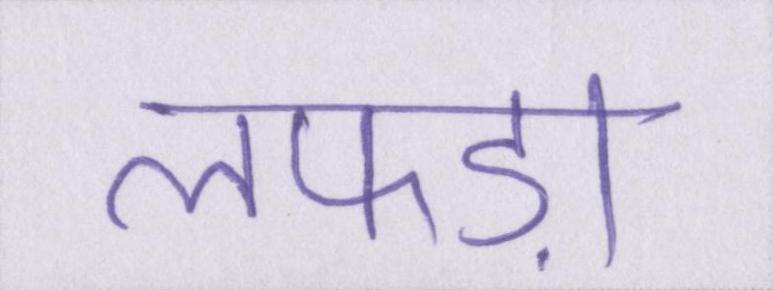 लफड़ा